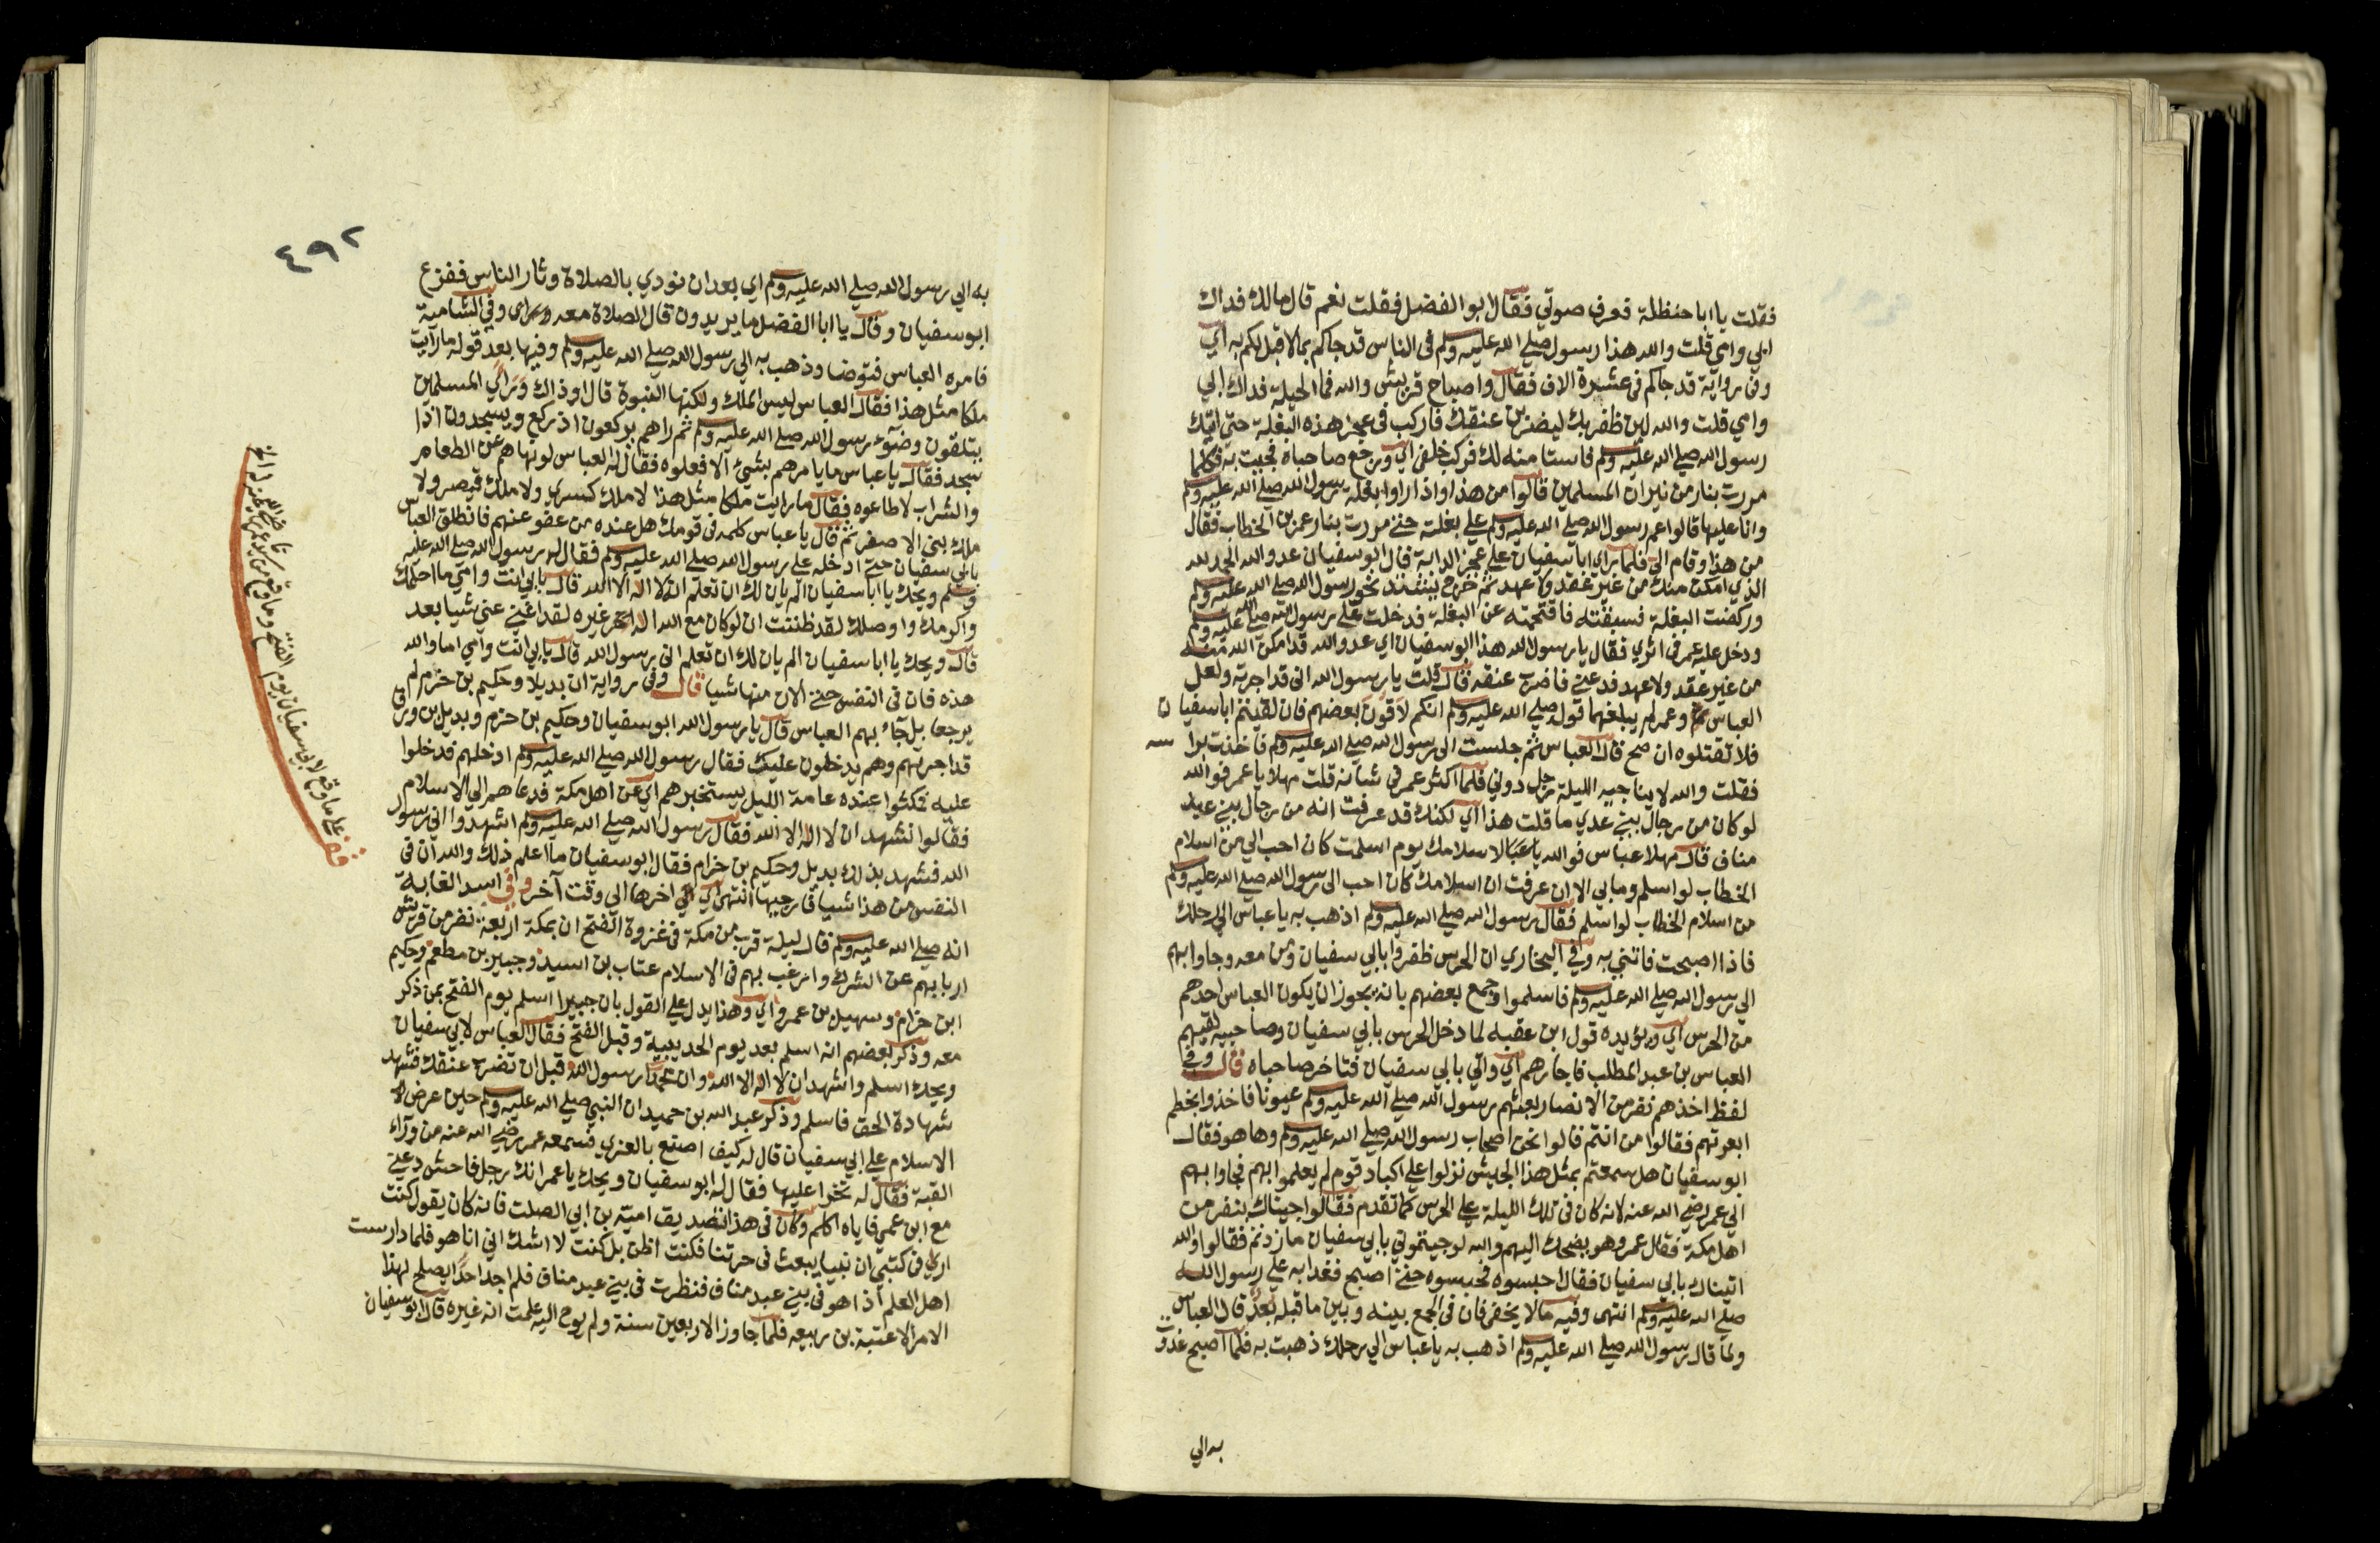 فقلت يا ابا حنظلة فعرف صوتي فقال ابو الفضل فقلت نعم قال مالك فداك
ابي وامي قلت والله هذا رسول صلي الله عليه وسلم في الناس قد جاكم بما لا قبل لكم به اي
وفي رواية قد جاكم في عشرة الاف فقال واصباح قريش والله فما الحيلة فداك ابي
وامي قلت والله لين ظفر بك ليضربن عنقك فاركب في عجز هذه البغلة حتي اتيك
رسول الله صلي الله عليه وسلم فاستامنه لك فركب خلفي اي ورجع صاحباه فجيت به فكلما
مررت بنار من نيران المسلمين قالوا من هذا واذا راوا بغلة رسول الله صلي الله عليه وسلم
وانا عليها قالوا عم رسول الله صلي الله عليه وسلم علي بغلته حتي مررت بنار عمر بن الخطاب فقال
من هذا وقام الي فلما راي ابا سفيان علي عجز الدابة قال ابو سفيان عدو الله الحمد لله
الذي امكن منك من غير عقد ولا عهد ثم خرج يشتد نحو رسول الله صلي الله عليه وسلم
وركضت البغلة فسبقته فاقتحمت عن البغلة فدخلت علي رسول الله صلي الله عليه وسلم
ودخل عليه عمر في اثري فقال يا رسول الله هذا ابو سفيان اي عدو الله قد امكن الله منه
من غير عقد ولا عهد فدعني فاضرب عنقه قال قلت يا رسول الله اني قد اجرته ولعل
العباس وعمر لم يبلغهما قوله صلي الله عليه وسلم انكم لاقون بعضهم فان لقيتم ابا سفيان
فلا تقتلوه ان صح قال العباس ثم جلست الي رسول الله صلي الله عليه وسلم فاخذت براسه
فقلت والله لا يناجيه الليلة رجل دوني فلما اكثر عمر في شانه قلت مهلا يا عمر فوالله
لو كان من رجال بني عدي ما قلت هذا اي لكنك قد عرفت انه من رجال بني عبد
مناف قال مهلا عباس فوالله لاسلامك يوم اسلمت كان احب الي من اسلام
الخطاب لو اسلم وما بي الا ان عرفت ان اسلامك كان احب الي رسول الله صلي الله عليه وسلم
من اسلام الخطاب لو اسلم فقال رسول الله صلي الله عليه وسلم اذهب به يا عباس الي رحلك
فاذا اصبحت فاتني به وفي البخاري ان الحرس ظفروا بابي سفيان ومن معه وجاوا بهم
الي رسول الله صلي الله عليه وسلم فاسلموا وجمع بعضهم بانه يجوز ان يكون العباس اخذهم
من الحرس اي ويؤيده قول ابن عقبه لما دخل الحرس بابي سفيان وصاحبيه لقيهم
العباس بن عبد المطلب فاجارهم اي واتي بابي سفيان فتاخر صاحباه قال وفي
لفظ اخذهم نفر من الانصار بعثهم رسول الله صلي الله عليه وسلم عيونا فاخذوا بخطم
ابعرتهم فقالوا من انتم قالوا نحن اصحاب رسول الله صلي الله عليه وسلم وها هو فقال
ابو سفيان هل سمعتم بمثل هذا الجيش نزلوا علي اكباد قوم لم يعلموا بهم فجاوا بهم
الي عمر رضي الله عنه لانه كان في تلك الليلة علي الحرس كما تقدم فقالوا جيناك بنفر من
اهل مكة فقال عمر وهو يضحك اليهم والله لو جيتموني بابي سفيان ما زدتم فقالوا والله
اتيناك بابي سفيان فقال احبسوه فحبسوه حتي اصبح فغدا به علي رسول الله
صلي الله عليه وسلم انتهي وفيه ما لا يخفي فان في الجمع بينه وبين ما قبله بعدا قال العباس
ولما قال رسول الله صلي الله عليه وسلم اذهب به يا عباس الي رحلك ذهبت به فلما اصبح غدوت
به الي
٤٩٢
به الي رسول الله صلي الله عليه وسلم اي بعد ان نودي بالصلاة وثار الناس ففزع
ابو سفيان وقال يا ابا الفضل ما يريدون قال الصلاة معه وفي الشامية
فامره العباس فتوضا وذهب به الي رسول الله صلي الله عليه وسلم وفيها بعد قوله ما رايت
ملكا مثل هذا فقال العباس ليس الملك ولكنها النبوة قال اوذاك وراي المسلمين
يتلقون وضوء رسول الله صلي الله عليه وسلم ثم راهم يركعون اذ ركع ويسجدون اذا
سجد فقال يا عباس ما يامرهم بشيء الا فعلوه فقال له العباس لو نهاهم عن الطعام
والشراب لاطاعوه فقال ما رايت ملكا مثل هذا لا ملك كسري ولا ملك قيصر ولا
ملك بني الاصفر ثم قال يا عباس كلمه في قومك هل عنده من عفو عنهم فانطلق العباس
بابي سفيان حتي ادخله علي رسول الله صلي الله عليه وسلم فقال له رسول الله صلي الله عليه
وسلم ويحك يا ابا سفيان الم يان لك ان تعلم انه لا اله الا الله قال بابي انت وامي ما احلمك
واكرمك واوصلك لقد ظننت ان لو كان مع الله اله اخر غيره لقد اغني عني شيا بعد
قال ويحك يا ابا سفيان الم يان لك ان تعلم اني رسول الله قال بابي انت وامي اما والله
هذه فان في النفس حتي الان منها شيا قال وفي رواية ان بديلا وحكيم بن حزام لم
يرجعا بل جاء بهم العباس قال يا رسول الله ابو سفيان وحكيم بن حزام وبديل بن ورقا
قد اجرتهم وهم يدخلون عليك فقال رسول الله صلي الله عليه وسلم ادخلهم فدخلوا
عليه فمكثوا عنده عامة الليل يستخبرهم اي عن اهل مكة فدعاهم الي الاسلام
فقالوا نشهد ان لا اله الا الله فقال رسول الله صلي الله عليه وسلم اشهدوا اني رسول
الله فشهد بذلك بديل وحكيم بن حزام فقال ابو سفيان ما اعلم ذلك والله ان في
النفس من هذا شيا فارجيها انتهي اي اخرها الي وقت آخر وفي اسد الغابة
انه صلي الله عليه وسلم قال ليلة قرب من مكة في غزوة الفتح ان بمكة اربعة نفر من قريش
اربا بهم عن الشرك وارغب بهم في الاسلام عتاب بن اسيد وجبير بن مطعم وحكيم
ابن حزام وسهيل بن عمرو اي وهذا يدل علي القول بان جبيرا اسلم يوم الفتح بمن ذكر
معه وذكر بعضهم انه اسلم بعد يوم الحديبية وقبل الفتح فقال العباس لابي سفيان
ويحك اسلم واشهد ان لا اله الا الله وان محمدا رسول الله قبل ان تضرب عنقك فشهد
شهادة الحق فاسلم وذكر عبد الله بن حميد ان النبي صلي الله عليه وسلم حين عرض
الاسلام علي ابي سفيان قال له كيف اصنع بالعزي فسمعه عمر رضي الله عنه من وراء
القبة فقال له نخرا عليها فقال له ابو سفيان ويحك يا عمر انك رجل فاحش دعني
مع ابن عمي فاياه اكلم وكان في هذا تصديق امية بن ابي الصلت فانه كان يقول كنت
اري في كتبي ان نبيا يبعث في حرتنا فكنت اظن بل كنت لا اشك اني انا هو فلما دارست
اهل العلم اذا هو في بني عبد مناف فنظرت في بني عبد مناف فلم اجد احدا يصلح لهذا
الامر الا عتبة بن ربيعه فلما جاوز الاربعين سنة ولم يوح اليه علمت انه غيره قال ابو سفيان
قف علي ما وقع لابي سفيان يوم الفتح وما وقع